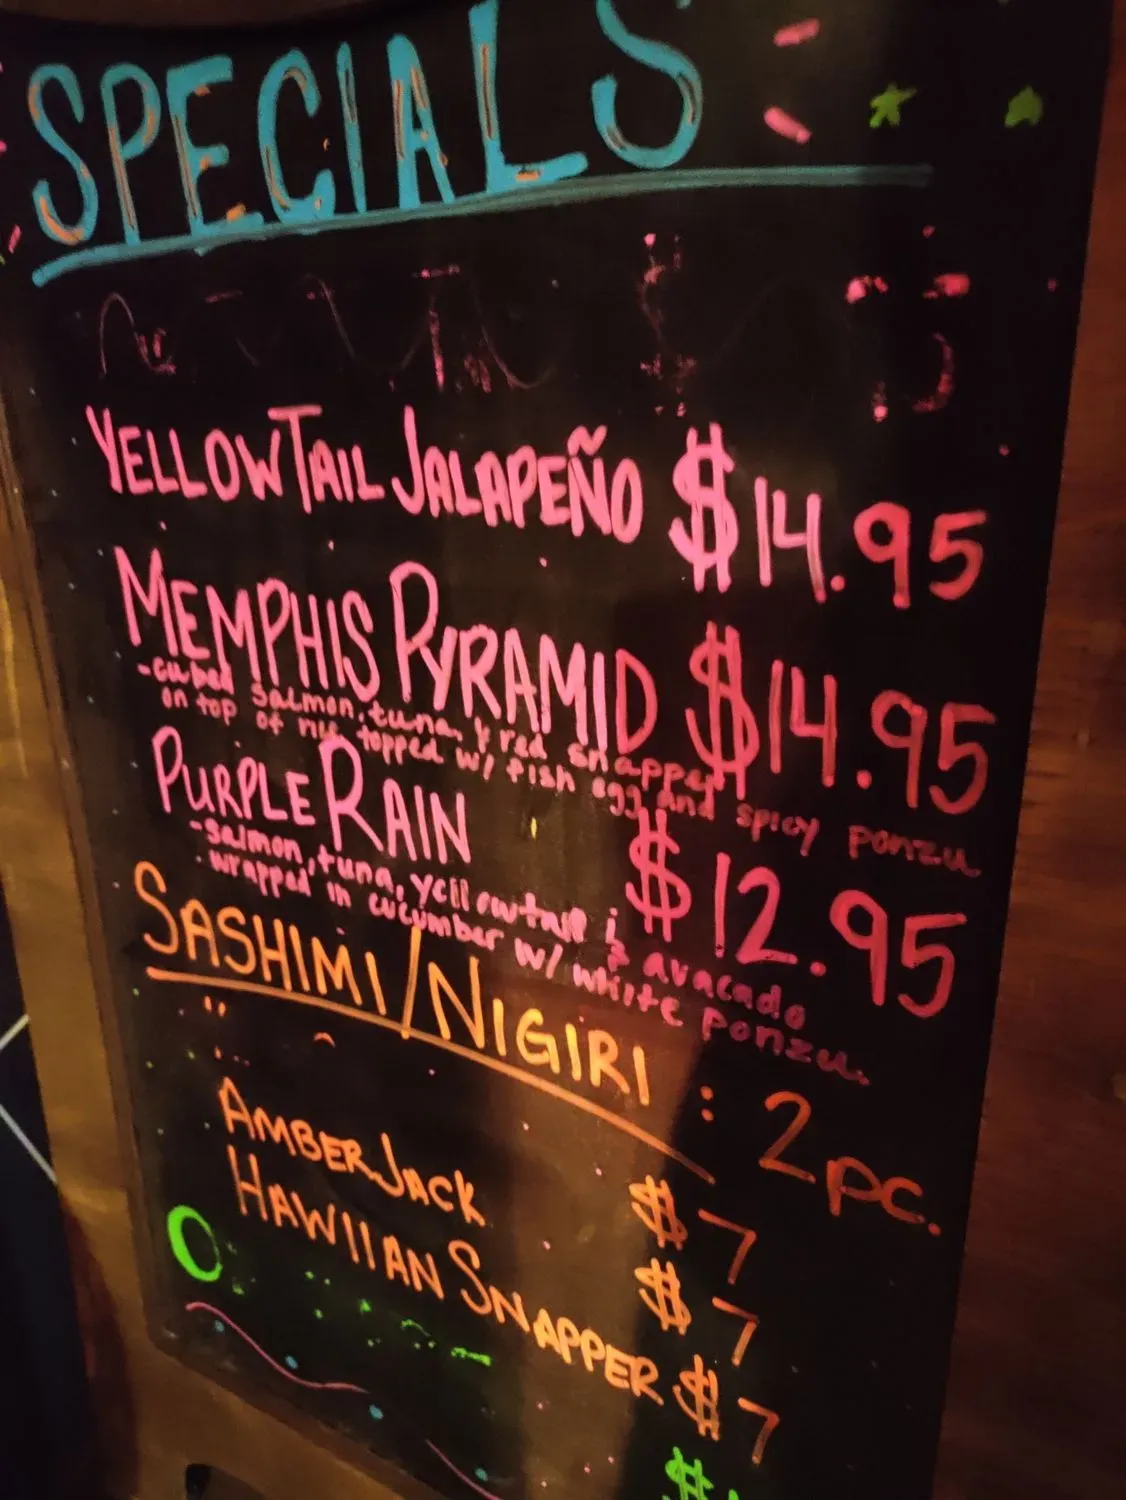 SPECIALS
YELLOWTAIL JALAPEÑO $14.95
MEMPHIS PYRAMID $14.95
-cubed salmon, tuna, & red snapper
on top of rice topped w/ fish egg and spicy ponzu
PURPLE RAIN $12.95
-salmon, tuna, yellowtail & avacado
-wrapped in cucumber w/ white ponzu.
SASHIMI/NIGIRI: 2pc.
$7
AMBERJACK $7
HAWIIAN SNAPPER $7
$